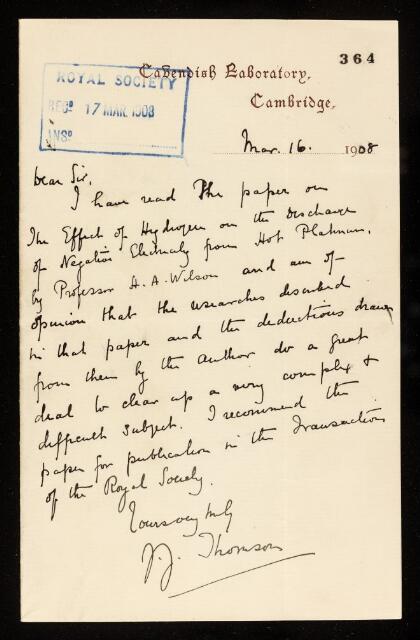 364
Cavendish Laboratory,
Cambridge.
ROYAL SOCIETY
RECD 17 MAR 1908
ANSD
Mar. 16. 1908
Dear Sir,
I have read the paper on
The Effect of Hydrogen on the Discharge
of Negative Electricity from Hot Platinum,
by Professor H. A. Wilson and am of
opinion that the researches described
in that paper and the deductions drawn
from them by the author do a great
deal to clear up a very complex &
difficult subject. I recommend the
paper for publication in the Transactions
of the Royal Society.
Yours very truly
J. J. Thomson